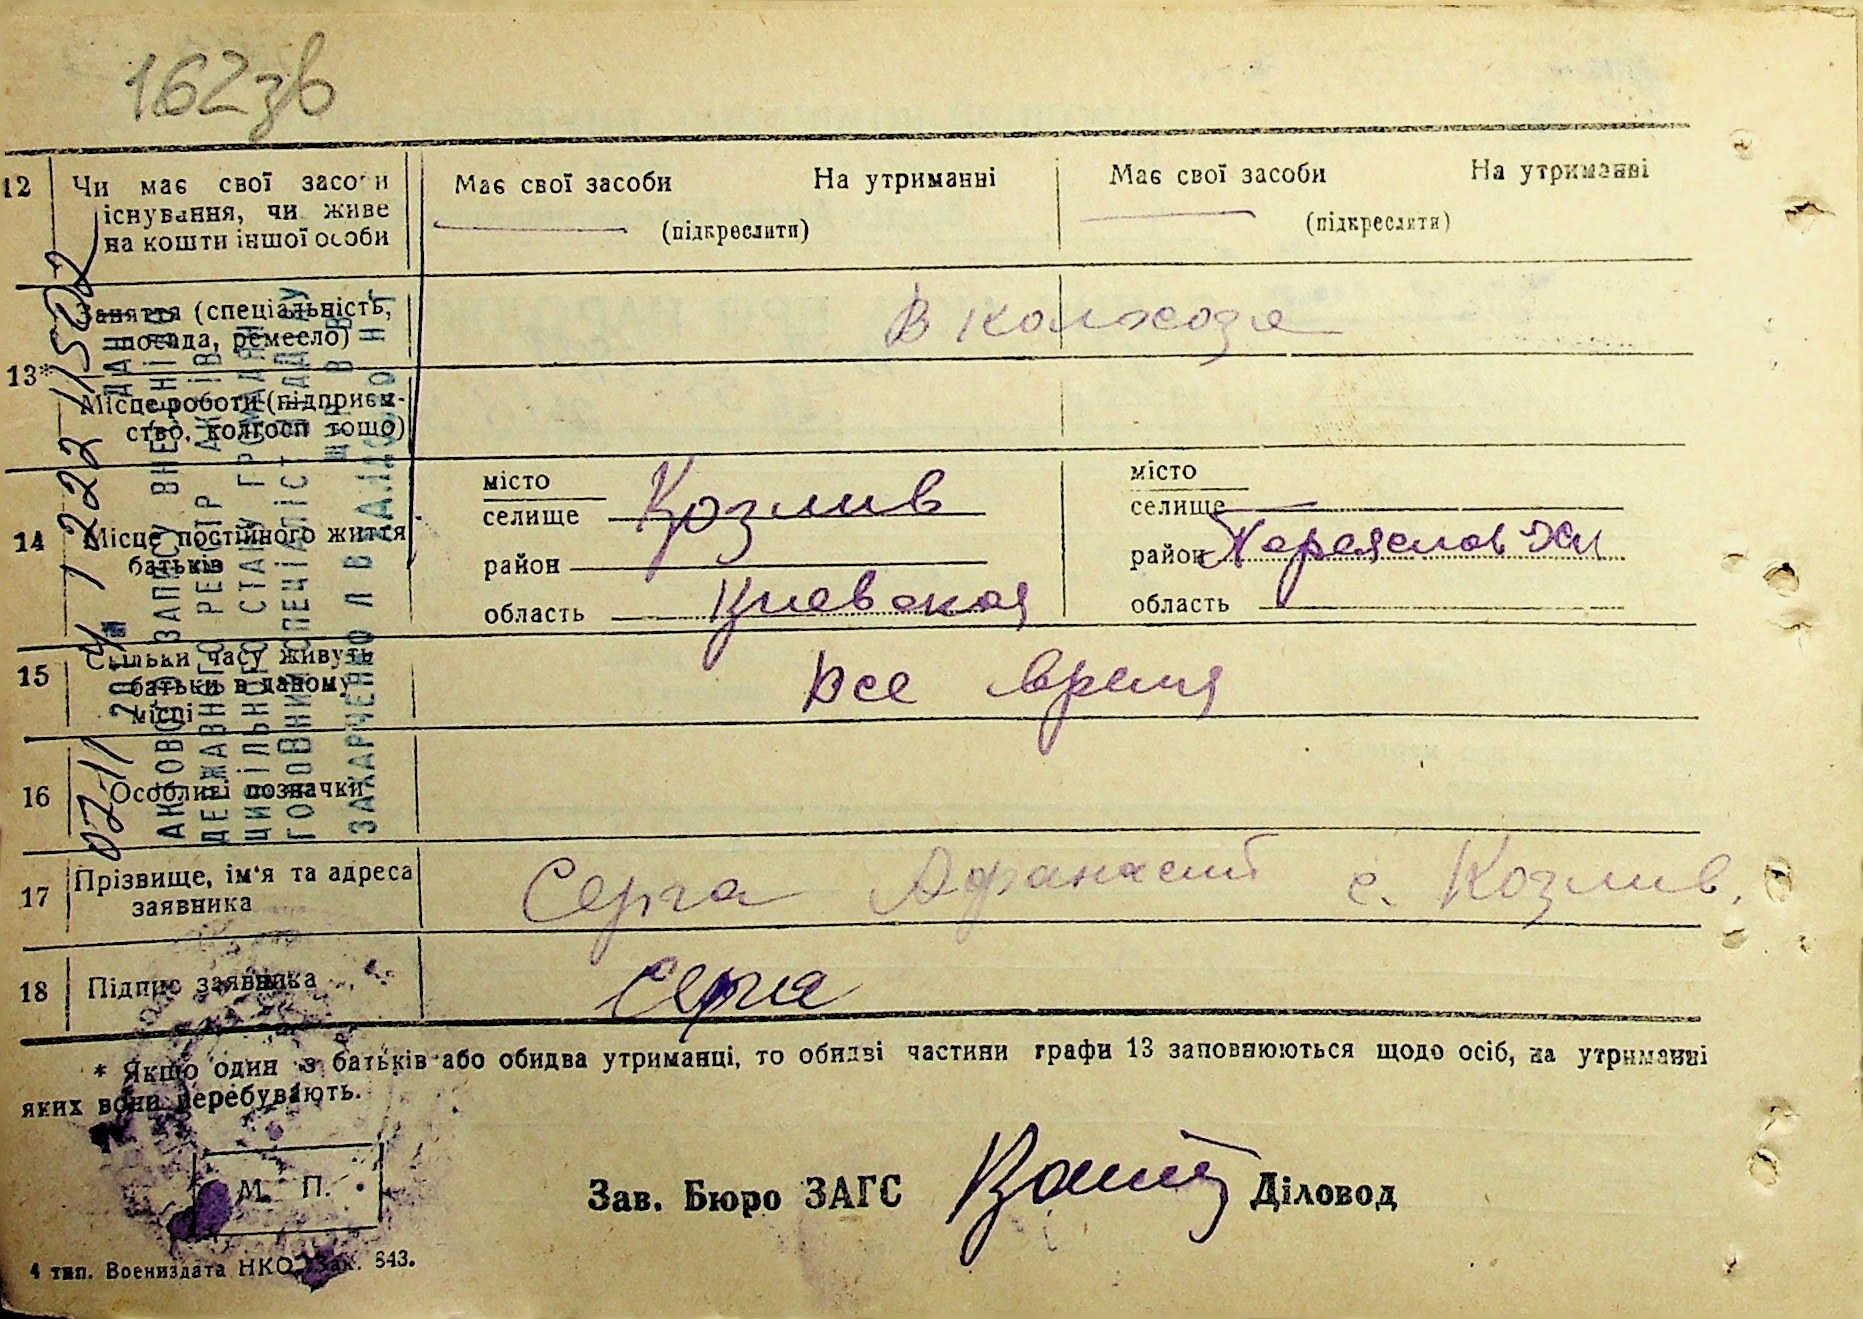 162зв
12 Чи має свої засоби Має свої засоби На утриманні Має свої засоби На утриманні
існування, чи живе (підкреслити) (підкреслити)
на кошти іншої особи
13* Заняття (спеціальність, В колхозе
посада, ремесло)
Місце роботи (підприєм-
ство, колгосп тощо)
14 Місце постійного життя батьків
місто
селище Козлив
район
область Киевская
місто
селище
район
область
15 Скільки часу живуть Все время
батьки в даному
місці
16 Особливі позначки
17 Прізвище, ім'я та адреса Серга Афанасий с. Козлив.
заявника
18 Підпис заявника Серга
* Якщо один з батьків або обидва утриманці, то обидві частини графи 13 заповнюються щодо осіб, на утриманні
яких вони перебувають.
М. П.
Зав. Бюро ЗАГС Діловод
4 тип. Воениздата НКО Зак. 643.
АКТОВОГО ЗАПИСУ ВНЕСЕНІ ДО
ДЕРЖАВНОГО РЕЄСТР АКТІВ
ЦИВІЛЬНОГО СТАНУ ГРОМАДЯН
ГОЛОВНИЙ СПЕЦІАЛІСТ
ЗАХАРЧЕНКО Л В